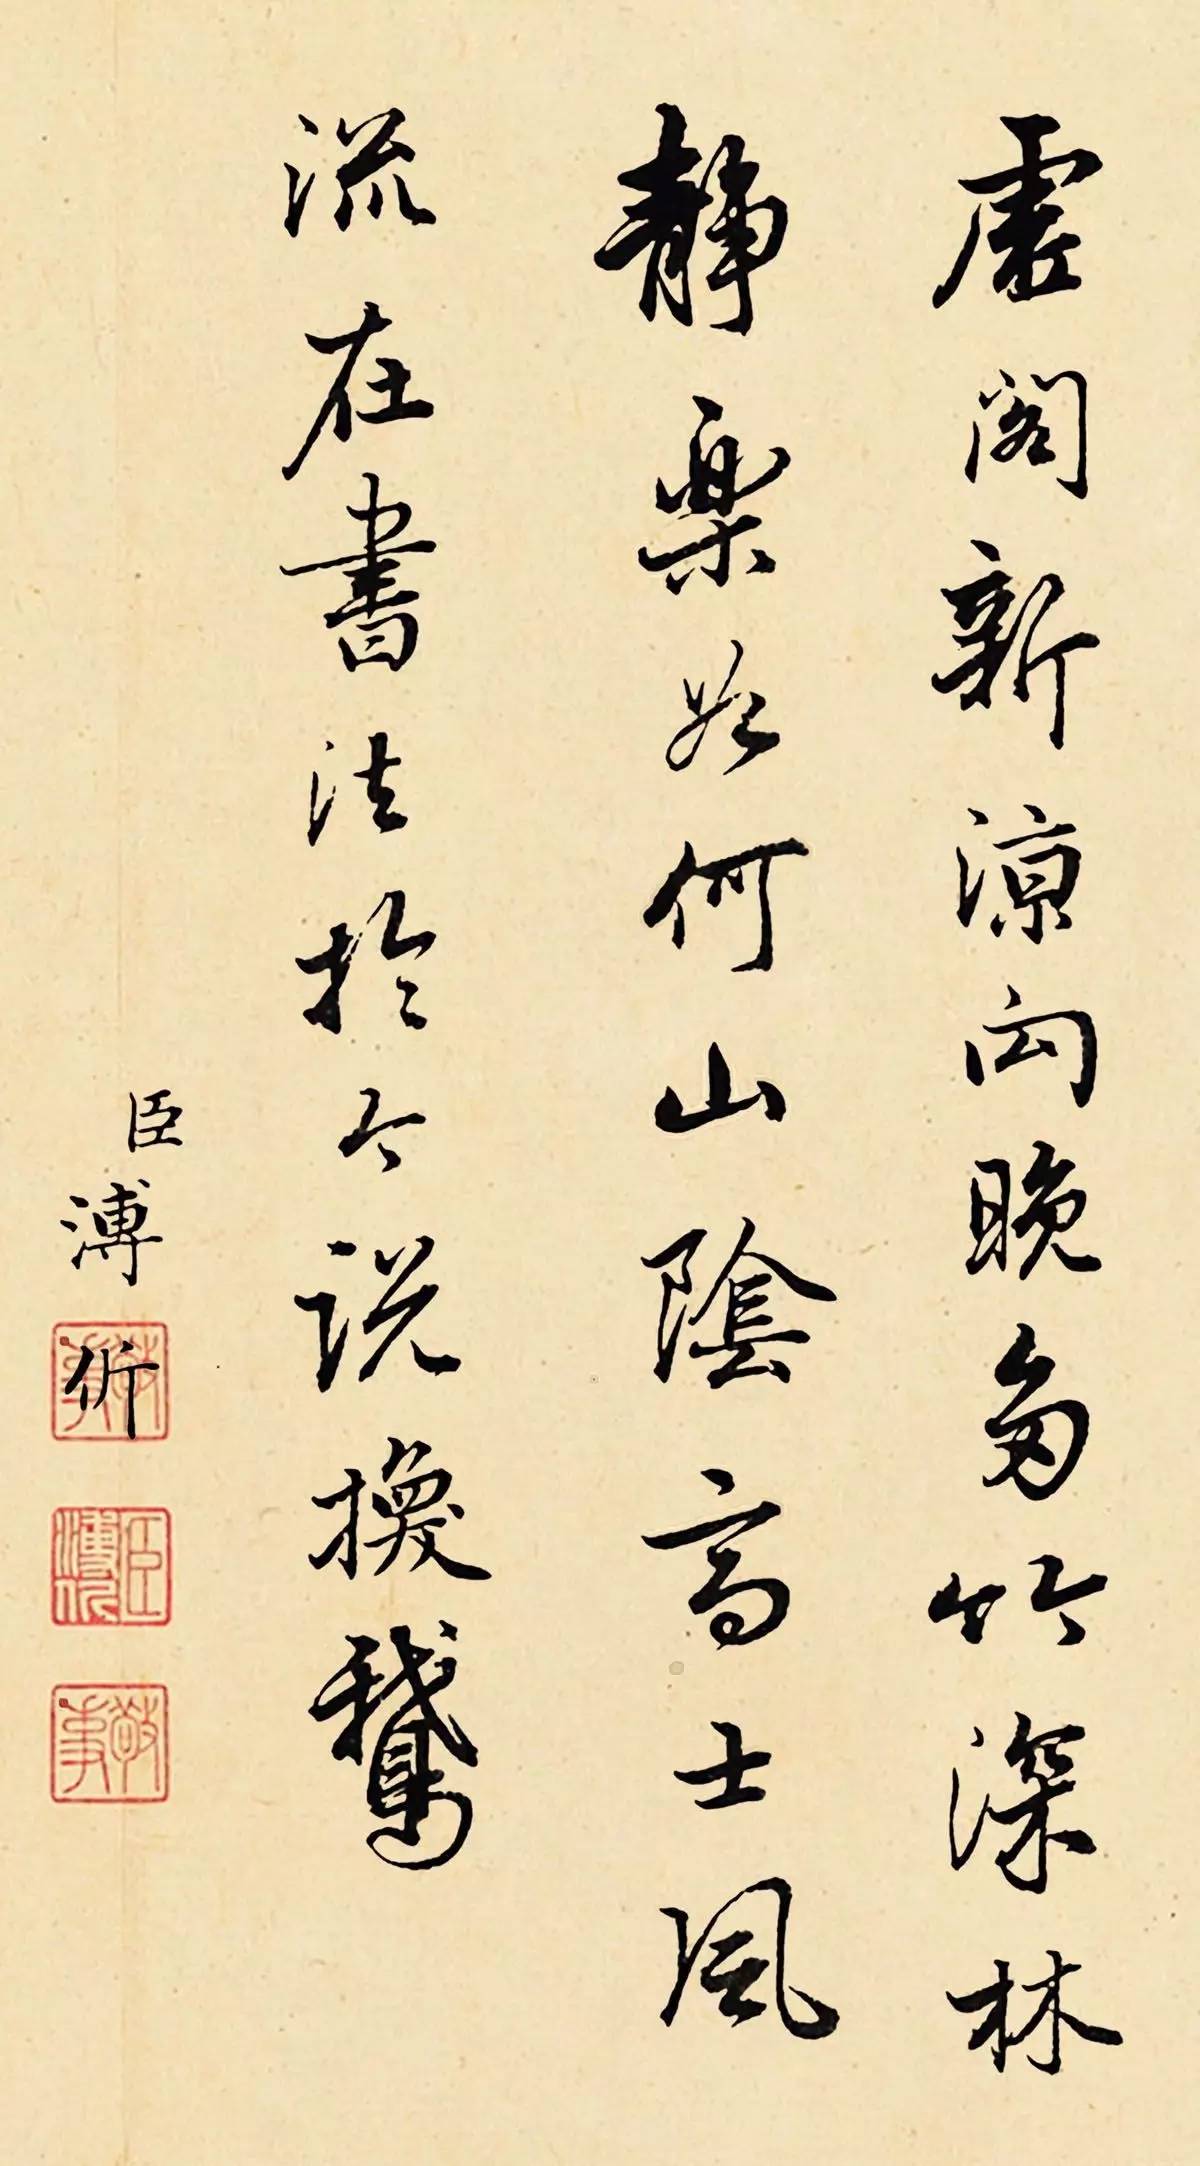 虛閣新涼向晚多竹深林
靜樂如何山陰高士風
流在書法於今說換鵝
臣溥伒
臣溥伒
敬事